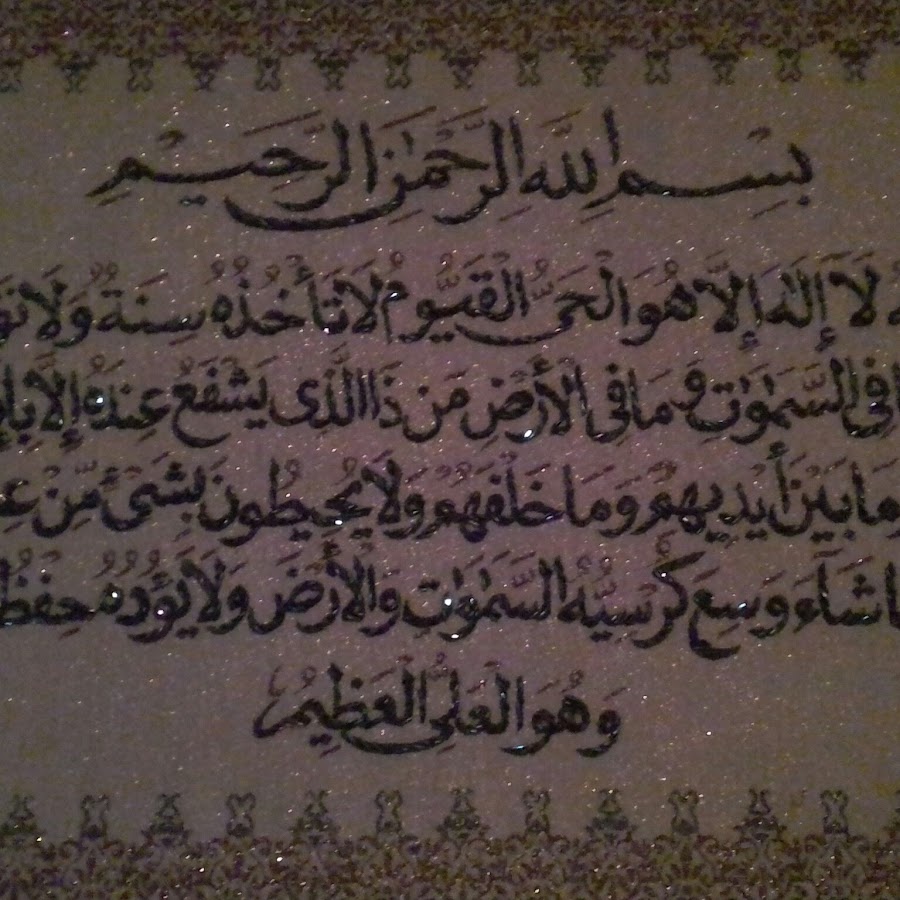 بِسْمِ اللهِ الرَّحْمٰنِ الرَّحِيمِ
لَآ إِلٰهَ إِلَّا هُوَ الْحَيُّ الْقَيُّومُ لَا تَأْخُذُهُ سِنَةٌ وَلَا
فِى السَّمٰوٰتِ وَمَا فِى الْأَرْضِ مَن ذَا الَّذِى يَشْفَعُ عِندَهُ إِلَّا
مَا بَيْنَ أَيْدِيهِمْ وَمَا خَلْفَهُمْ وَلَا يُحِيطُونَ بِشَىْءٍ مِّنْ
شَآءَ وَسِعَ كُرْسِيُّهُ السَّمٰوٰتِ وَالْأَرْضَ وَلَا يَؤُدُهُ
وَهُوَ الْعَلِىُّ الْعَظِيمُ